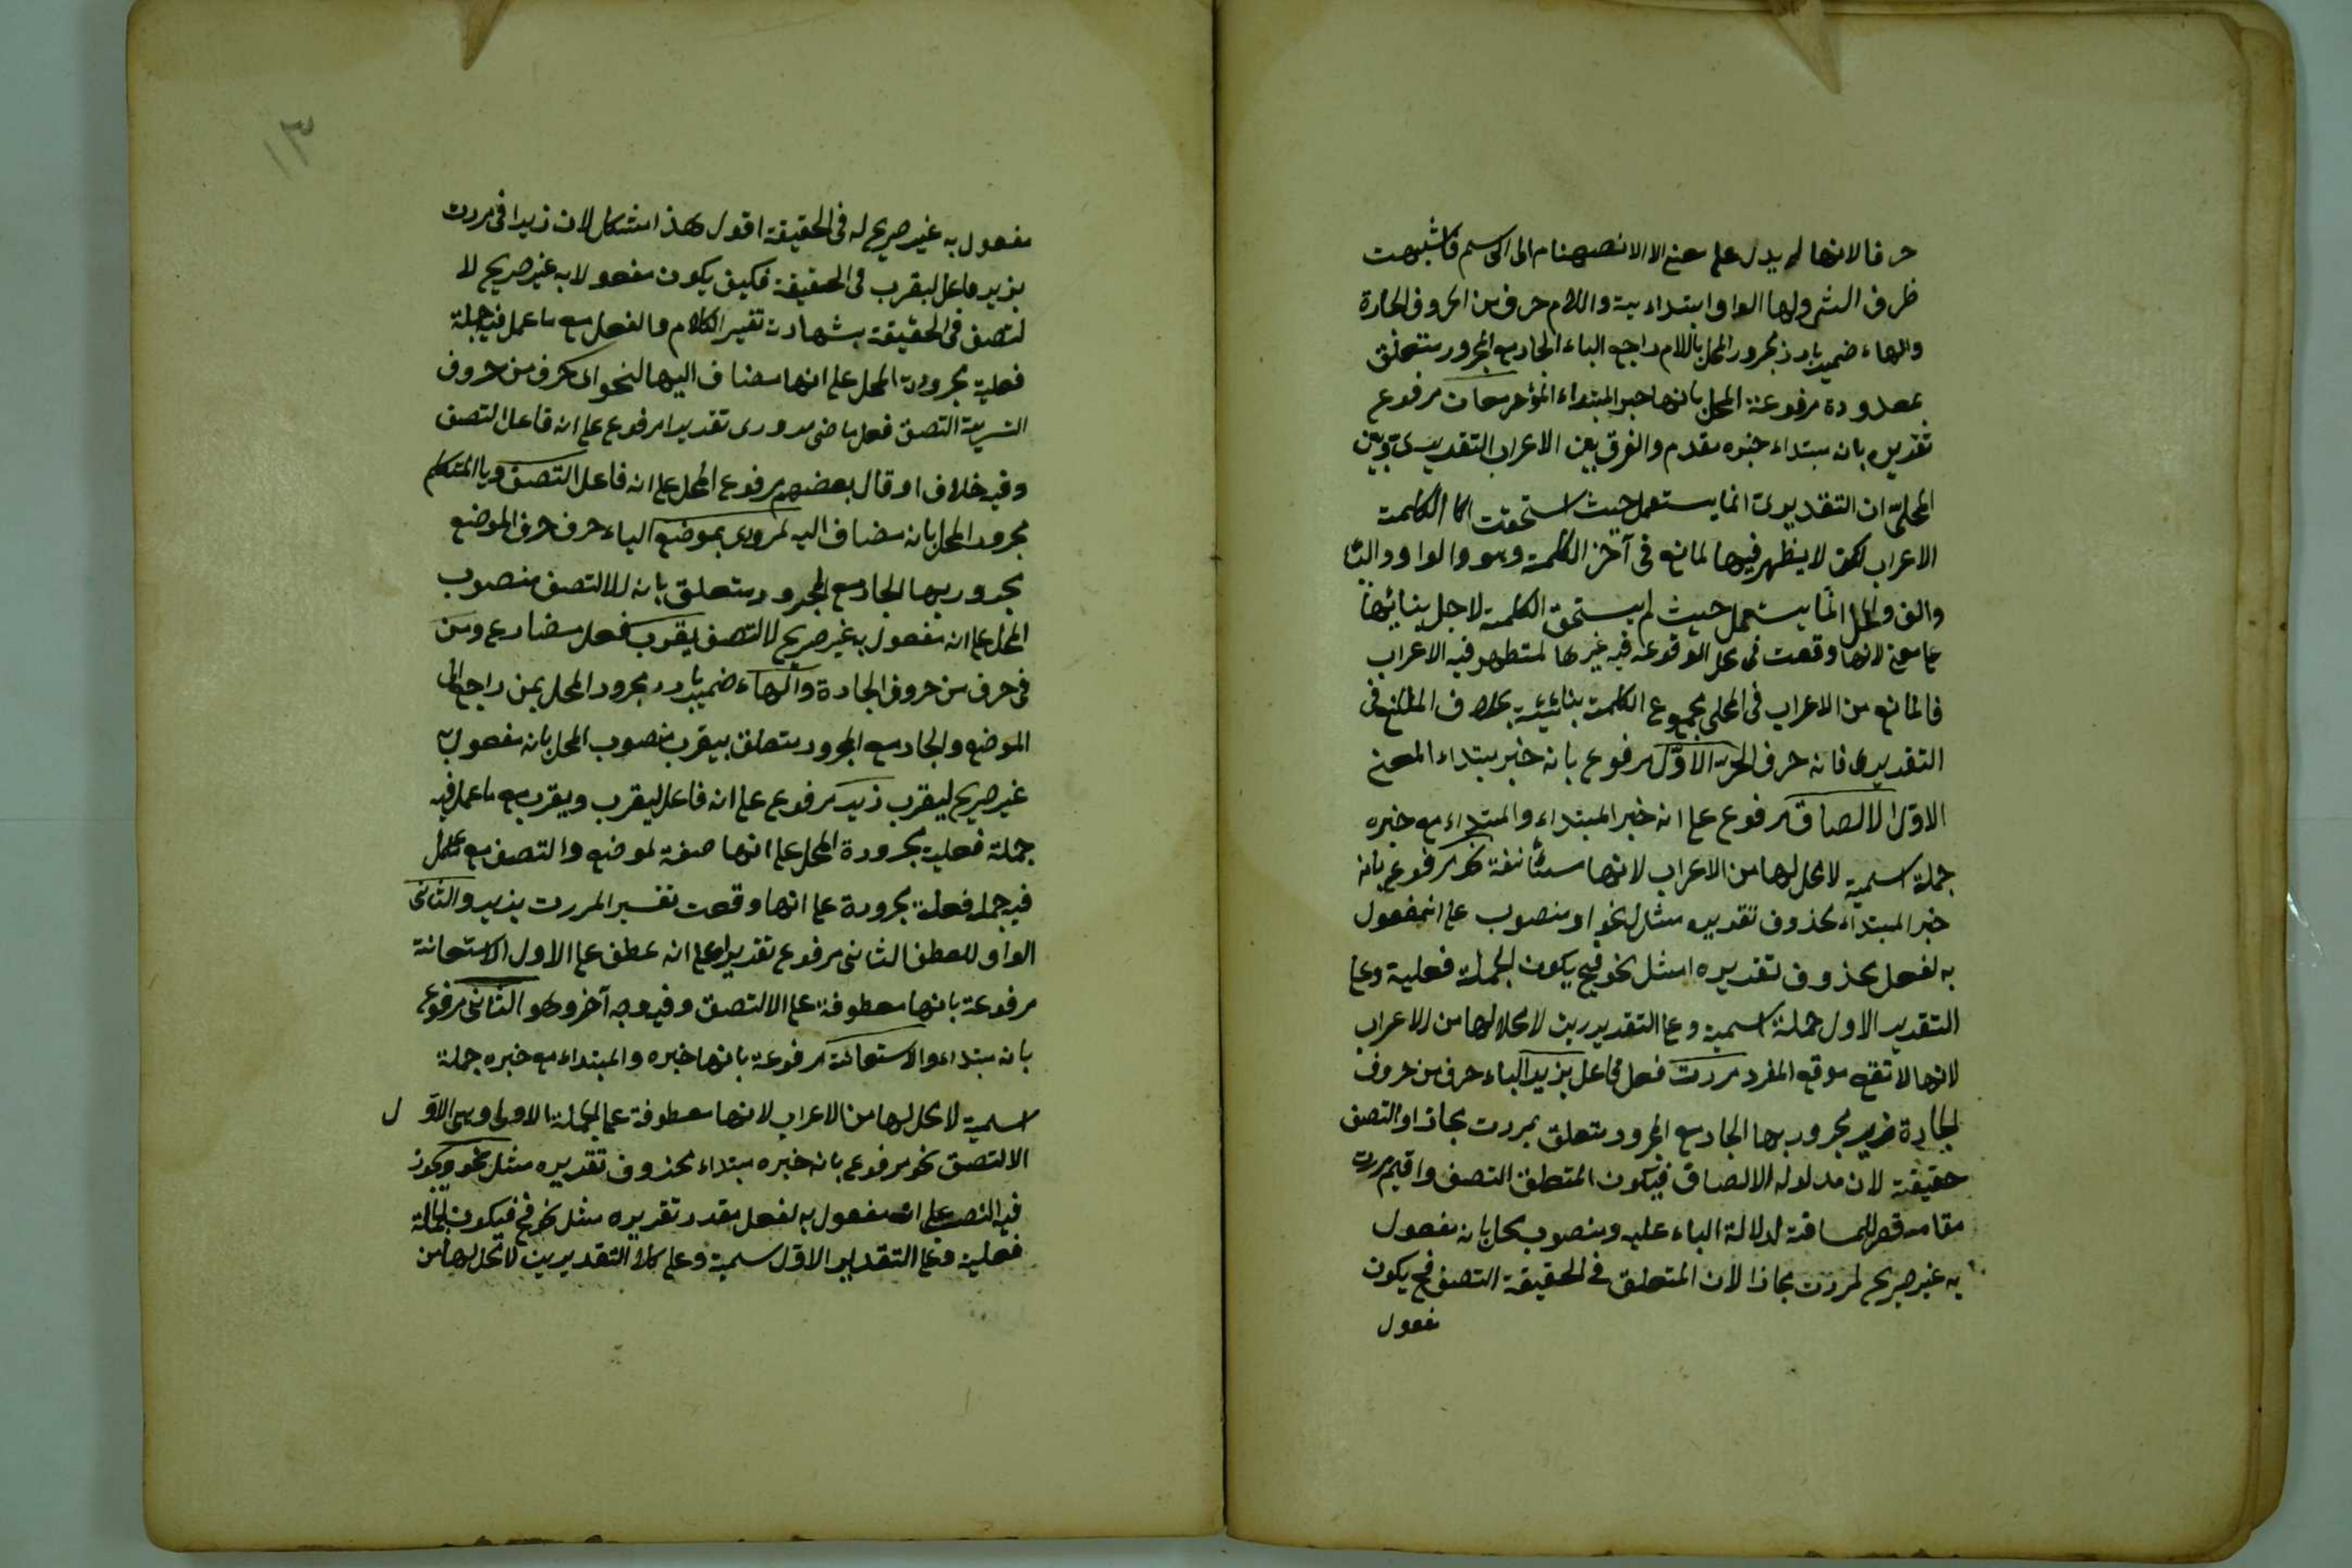 حرفا لانها لم يدل على معنى الا بانضمامها الى اسم فاشبهت
ظرف الشئ ولها الواو ابتدائية واللام حرف من الحروف الجارة
والهاء ضمير بارز مجرور المحل باللام راجع الباء الجار مع المجرور متعلق
بمعدودة مرفوعة المحل بانها خبر المبتداء المؤخر معان مرفوع
تقديره بانه مبتداء خبره مقدم والفرق بين الاعراب التقديرى وبين
المحلى ان التقديرى انما يستعمل حيث استحقت الكلمة
الاعراب لكن لا يظهر فيها لمانع فى آخر الكلمة وهو الواو والياء
والف والمحل انما يستعمل حيث لم يستحق الكلمة لاجل بنائها
على معنى لانها وقعت فى محل لو وقعه فيه غيرها لتظهر فيه الاعراب
فالمانع من الاعراب فى المحلى مجموع الكلمة بنائية بخلاف المانع فى
التقديرى فانه حرف الاخر الاول مرفوع بانه خبر مبتداء المعنى
الاول الالصاق مرفوع على انه خبر المبتداء والمبتداء مع خبره
جملة اسمية لا محل لها من الاعراب لانها مستأنفة نحو مرفوع بانه
خبر المبتداء محذوف تقديره مثاله نحو او منصوب على انه مفعول
به لفعل محذوف تقديره امثل نحو فح يكون الجملة فعلية وعلى
التقدير الاول جملة اسمية وعلى التقديرين لا محل لها من الاعراب
لانها لا تقع موقع المفرد مررت فعل فاعل بزيد الباء حرف من حروف
الجارة زيد مجرور بها الجار مع المجرور متعلق بمررت مجازا والتصق
حقيقة لان مدلوله الالصاق فيكون المتعلق التصق واقيم مررت
مقامه قصر للمسافة لدلالة الباء عليه ومنصوب محل بانه مفعول
به غير صريح لمررت مجازا لان المتعلق فى الحقيقة التصق فح يكون
مفعول
١٣
مفعول به غير صريح له فى الحقيقة اقول هذا مشكل لان زيدا فى مررت
بزيد فاعل ليقرب فى الحقيقة فكيف يكون مفعولا به غير صريح لا
لتصق فى الحقيقة بشهادت تفسير الكلام والفعل مع ما عمل فيه جملة
فعلية مجرورة المحل على انها مضاف اليها لنحو اى حرف من حروف
التفسيرية التصق فعل ماضى مرورى تقديرا مرفوع على انه فاعل التصق
وفيه خلاف او قال بعضهم مرفوع المحل على انه فاعل التصق ويا المتكلم
مجرور المحل بانه مضاف اليه لمرورى بموضع الباء حرف جر الموضع
مجرور بها الجار مع المجرور متعلق بانه لالتصق منصوب
المحل على انه مفعول به غير صريح لالتصق يقرب فعل مضارع ومن
فى حرف من حروف الجارة والهاء ضمير بارز مجرور المحل بمن راجع الى
الموضع والجار مع المجرور متعلق بيقرب منصوب المحل بانه مفعول به
غير صريح ليقرب زيد مرفوع على انه فاعل ليقرب ويقرب مع ما عمل فيه
جملة فعلية مجرورة المحل على انها صفة لموضع والتصق مع ما عمل
فيه جملة فعلية مجرورة على انها وقعت تفسير المررت بزيد والثانى
الواو للعطف الثانى مرفوع تقديرا على انه عطف على الاول الاستعانة
مرفوعة بانها معطوفة على الالتصق وفيه وجه آخر وهو الثانى مرفوع
بانه مبتداء والاستعانة مرفوعة بانها خبره والمبتداء مع خبره جملة
اسمية لا محل لها من الاعراب لانها معطوفة على الجملة الاولى وهى الاول
الالتصق نحو مرفوع بانه خبره مبتداء محذوف تقديره مثله نحو ويجوز
فيه النصب على انه مفعول به لفعل مقدر تقديره مثل نحو فح فيكون الجملة
فعلية وعلى التقدير الاول اسمية وعلى كلا التقديرين لا محل لها من